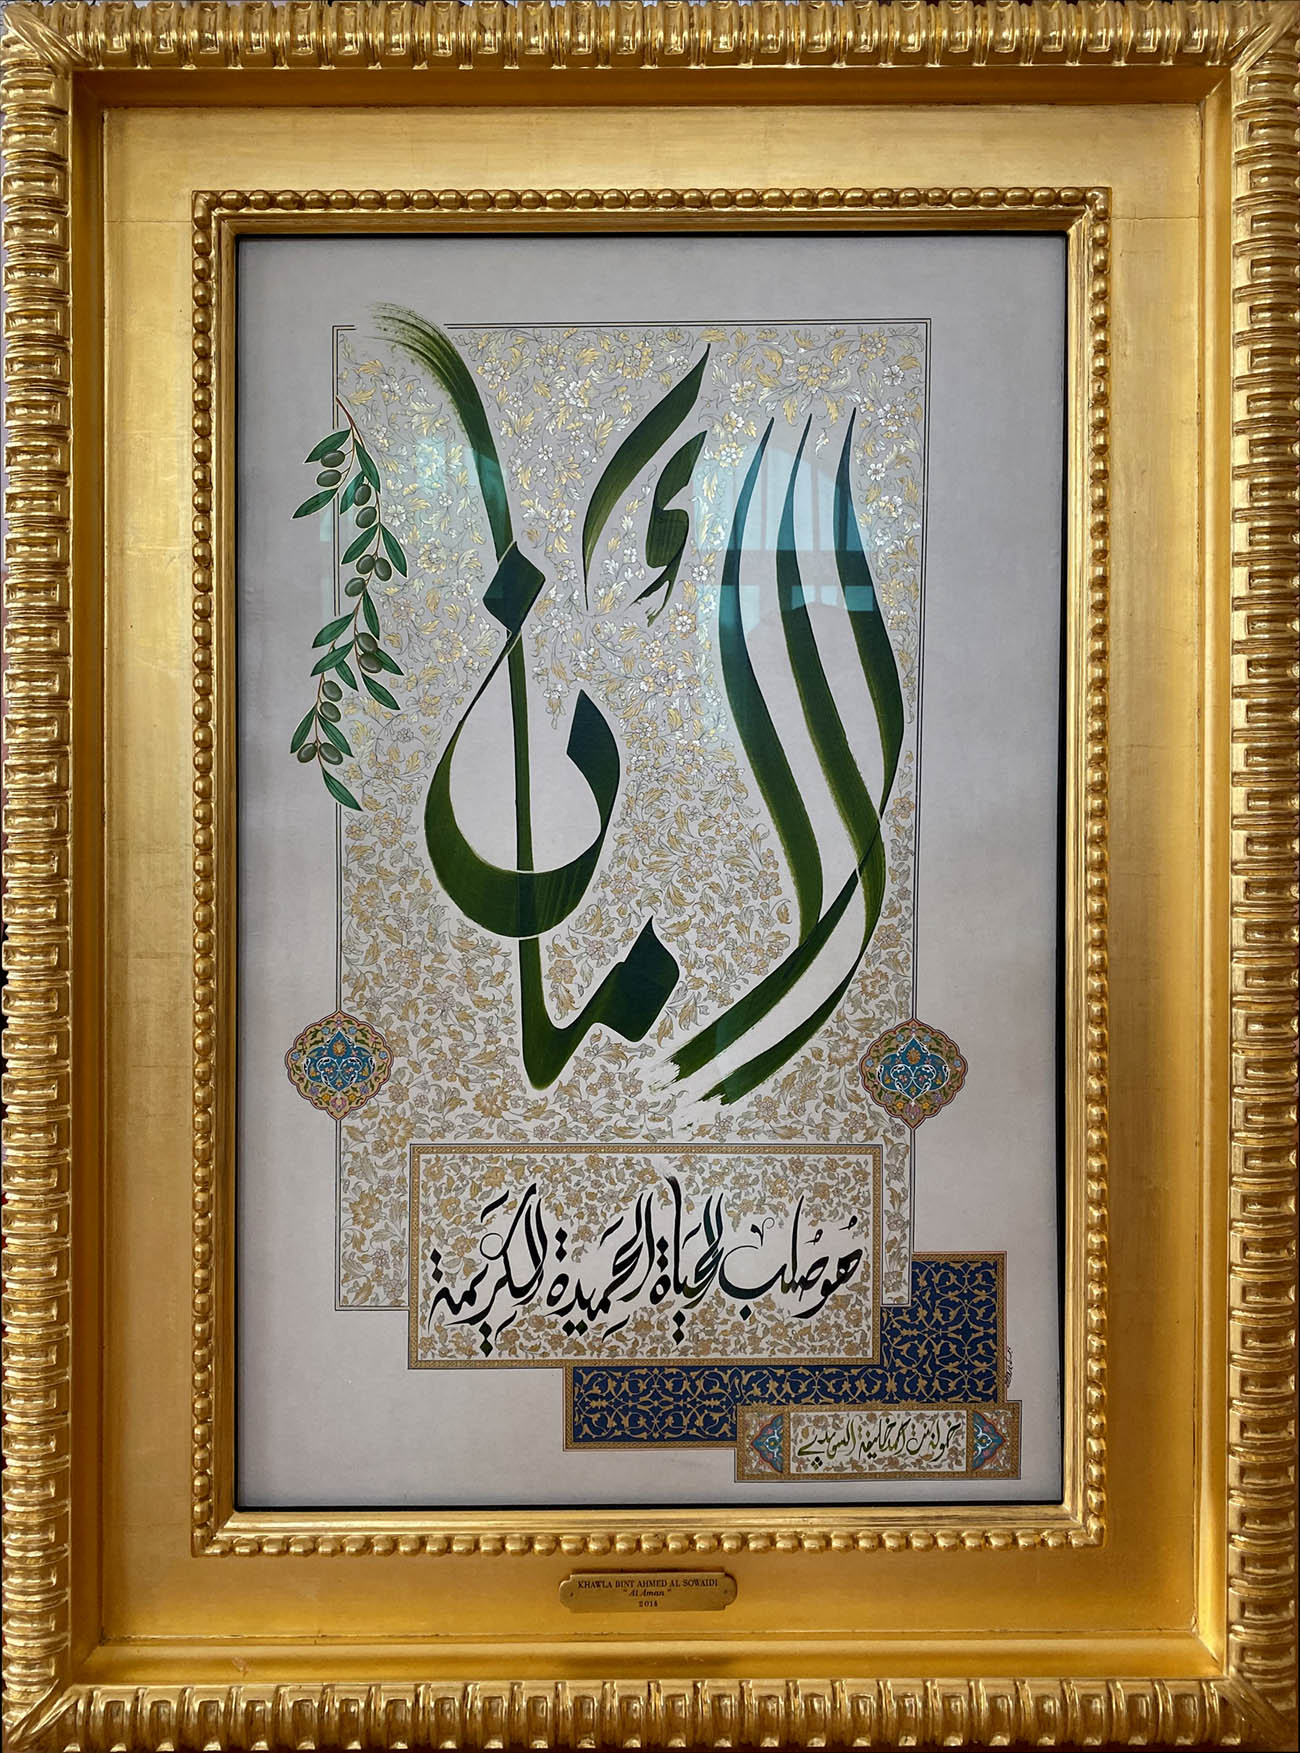 الأمان
هُو صُلب الحَياة الحَمِيدة الكَرِيمة
خولة بنت أحمد خليفة السويدي
KHAWLA BINT AHMED AL SOWAIDI
"Al Aman"
2014